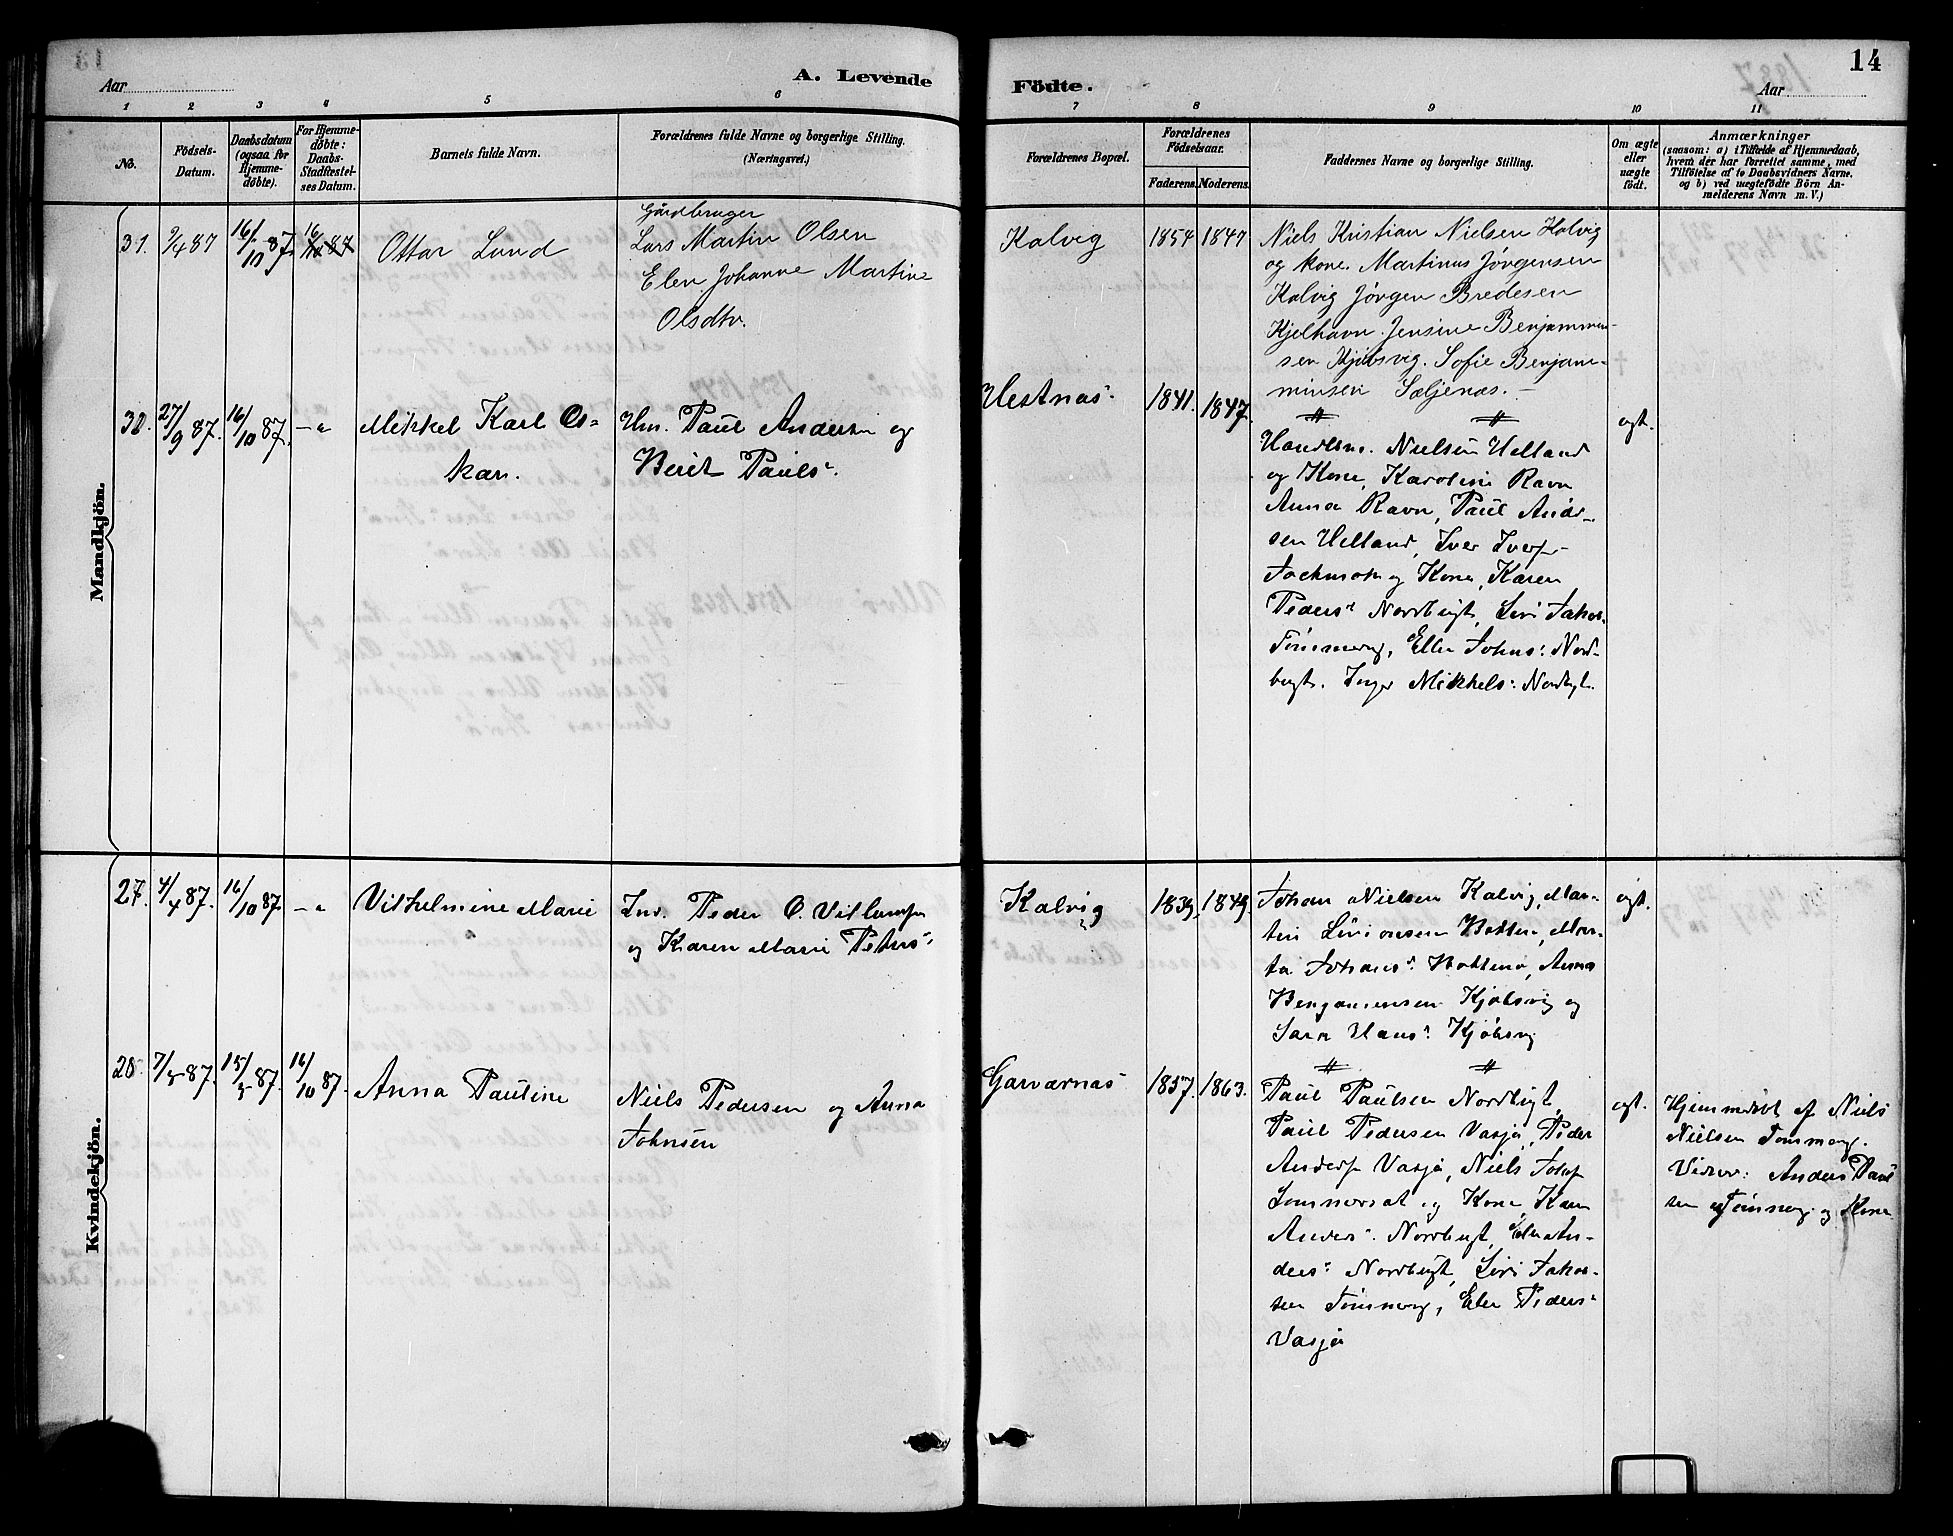 Aar
A. Levende
Födte.
14
Aar
1 2 3 4 5 6 7 8 9 10 11
No.
Födsels-
Datum.
Daabsdatum
(ogsaa for
Hjemme-
döbte).
For Hjemme-
döbte:
Daabs-
Stadfæstel-
ses Datum.
Barnets fulde Navn.
Forældrenes fulde Navne og borgerlige Stilling.
(Næringsvei.)
Forældrenes Bopæl.
Forældrenes
Födselsaar.
Faderens.
Moderens.
Faddernes Navne og borgerlige Stilling.
Om ægte
eller
uægte
födt.
Anmærkninger
(saasom: a) i Tilfælde af Hjemmedaab,
hvem der har forrettet samme, med
Tilföielse af to Daabsvidners Navne,
og b) ved uægtefödte Börn An-
melderens Navn m. V.)
Mandkjön.
31. 9/4 87 16/10 87. 16/10 87
Ottar Lund
Gårdbruger
Lars Martin Olsen
Elen Johanne Martine
Olsdtr.
Kalvig
1854 1847
Niels Kristian Nielsen Kalvig
og kone. Martinus Jørgensen
Kalvig Jørgen Bredesen
Kjelhavn. Jensine Benjammen-
sen Kjøbsvig. Sofie Benjam-
minsen Sæljenæs. -
32. 27/9 87. 16/10 87. - "
Mikkel Karl Os-
kar.
Paul Andersen og
Berit Pauls:
Vestnæs.
1841. 1847.
Nielsen Helland
og Kone, Karoline Ravn
Anna Ravn, Paul Andr-
sen Helland, Iver Ivers-
og Kone, Karen
Peders: Nordbugt, Siri Jakob-
Tömmerng, Ellen Johns: Nord-
bugt. Inger Mikkels: Nordbgt.
ægt.
Kvindekjön.
27. 4/4 87. 16/10 87. - "
Vilhelmine Marie
Peder O.
og Karen Marie Peters:
Kalvig
1839. 1849.
Johan Nielsen Kalvig, Mar-
tin Botten, Mar-
ta Johans: Anna
Benjaminsen Kjöbsvig og
Sara Hans: Kjöbsvig
ægt.
28. 7/3 87. 15/3 87. 16/10 87.
Anna Pauline
Niels Pedersen og Anna
Johnsen
Garvarnæs
1857. 1863.
Paul Paulsen Nordbugt,
Paul Pedersen Vasja, Peder
Anders Vasja, Niels
Sommerset og Kone, Karen
Anders: Nordbugt, Elen An-
ders: Nordbugt, Siri Jakob-
sen Tömmerng, Elen Peders:
Vasja
ægt.
Hjemmedöbt af Niels
Nielsen Tommerng.
Vidner: Anders Paul
sen Tömmerng og Kone